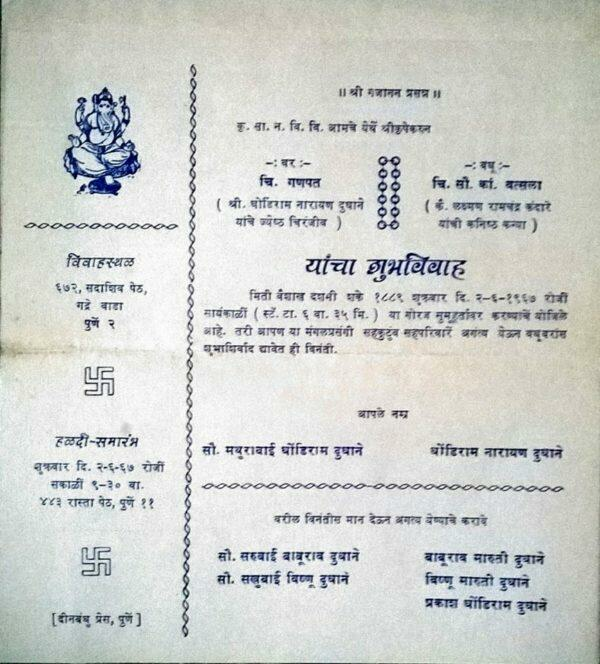 ॥ श्री गजानन प्रसन्न ॥
कृ. सा. न. वि. वि. आमचे येथें श्रीकृपेकरुन
-: वर :-
चि. गणपत
( श्री. धोंडिराम नारायण दुधाने
यांचे ज्येष्ठ चिरंजीव )
-: वधू :-
चि. सौ. कां. वत्सला
( कै. लक्ष्मण रामचंद्र कंदारे
यांची कनिष्ठ कन्या )
यांचा शुभविवाह
मिती वैशाख दशमी शके १८८९ शुक्रवार दि. २-६-१९६७ रोजीं
सायंकाळीं ( स्टँ. टा. ६ वा. ३५ मि. ) या गोरज सुमूहूर्तावर करण्याचें योजिले
आहे. तरी आपण या मंगलप्रसंगी सहकुटुंब सहपरिवारें अगत्य येऊन वधूवरांस
शुभाशिर्वाद द्यावेत ही विनंती.
आपले नम्र
सौ. मथुराबाई धोंडिराम दुधाने
धोंडिराम नारायण दुधाने
वरील विनंतीस मान देऊन अगत्य येण्याचे करावे
सौ. सरुबाई बाबूराव दुधाने
बाबूराव मारुती दुधाने
सौ. सखुबाई विष्णू दुधाने
विष्णू मारुती दुधाने
प्रकाश धोंडिराम दुधाने
विवाहस्थळ
६७२, सदाशिव पेठ,
गद्रे वाडा
पुणें २
हळदी-समारंभ
शुक्रवार दि. २-६-६७ रोजीं
सकाळीं ९-३० वा.
४४३ रास्ता पेठ, पुणें ११
[ दीनबंधु प्रेस, पुणें ]